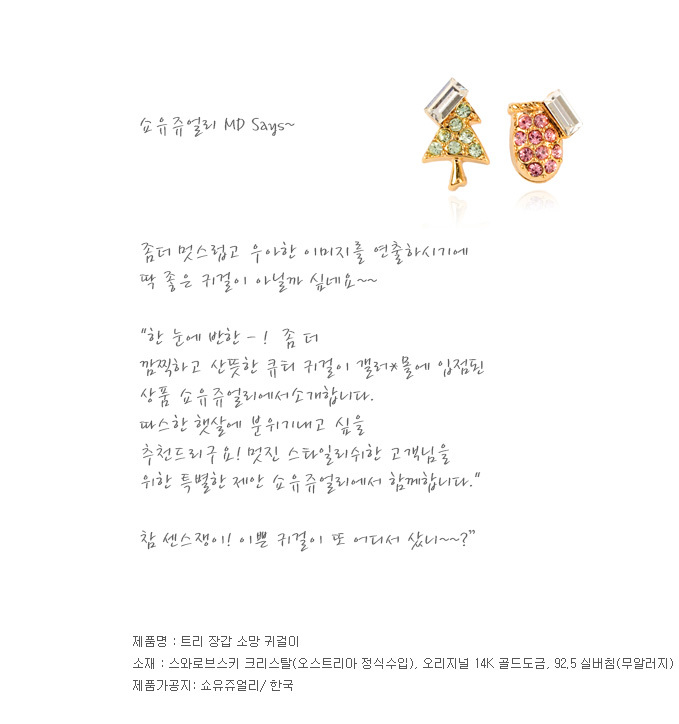 쇼유쥬얼리 MD Says~
좀더 멋스럽고 우아한 이미지를 연출하시기에
딱 좋은 귀걸이 아닐까 싶네요~~
"한 눈에 반한 - ! 좀 더
깜찍하고 산뜻한 큐티 귀걸이 갤러*몰에 입점된
상품 쇼유쥬얼리에서소개합니다.
따스한 햇살에 분위기내고 싶을
추천드리구요! 멋진 스타일리쉬한 고객님을
위한 특별한 제안 쇼유쥬얼리에서 함께합니다."
참 센스쟁이! 이쁜 귀걸이 또 어디서 샀니~~?"
제품명 : 트리 장갑 소망 귀걸이
소재 : 스와로브스키 크리스탈(오스트리아 정식수입), 오리지널 14K 골드도금, 92.5 실버침(무알러지)
제품가공지: 쇼유쥬얼리/ 한국